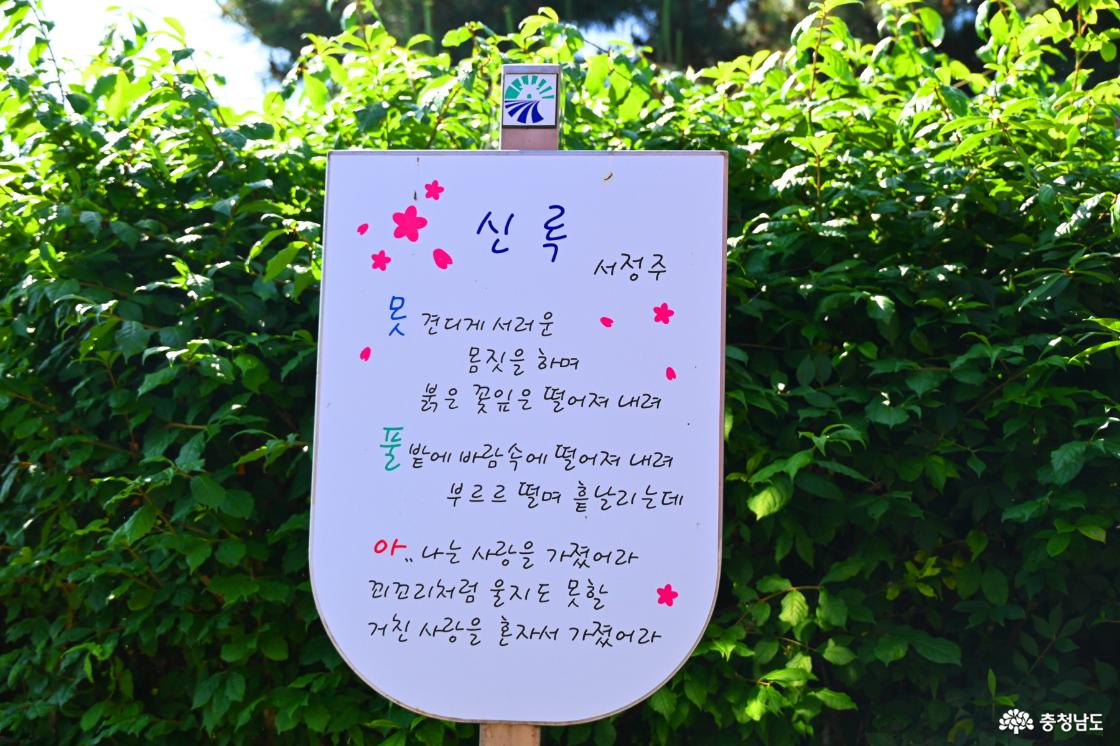 신록
서정주
못 견디게 서러운
몸짓을 하며
붉은 꽃잎은 떨어져 내려
풀밭에 바람속에 떨어져 내려
부르르 떨며 흩날리는데
아.. 나는 사랑을 가졌어라
꾀꼬리처럼 울지도 못할
거친 사랑을 혼자서 가졌어라
충청남도